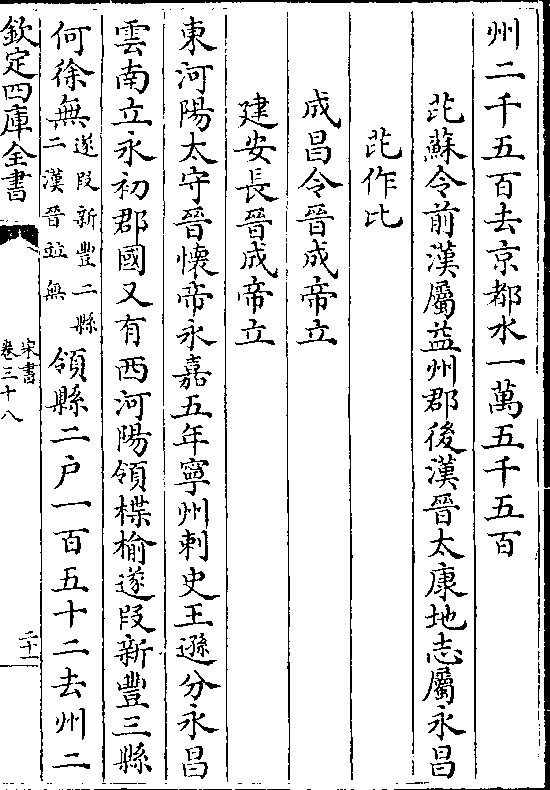 州二千五百去京都水一萬五千五百
芘蘇令前漢屬益州郡後漢晉太康地志屬永昌
芘作比
成昌令晉成帝立
建安長晉成帝立
東河陽太守晉懷帝永嘉五年寧州刺史王遜分永昌
雲南立永初郡國又有西河陽領楪榆遂段新豐三縣
何徐無遂段新豐二縣二漢晉並無領縣二户一百五十二去州二
欽定四庫全書
宋書
卷三十八
二十二